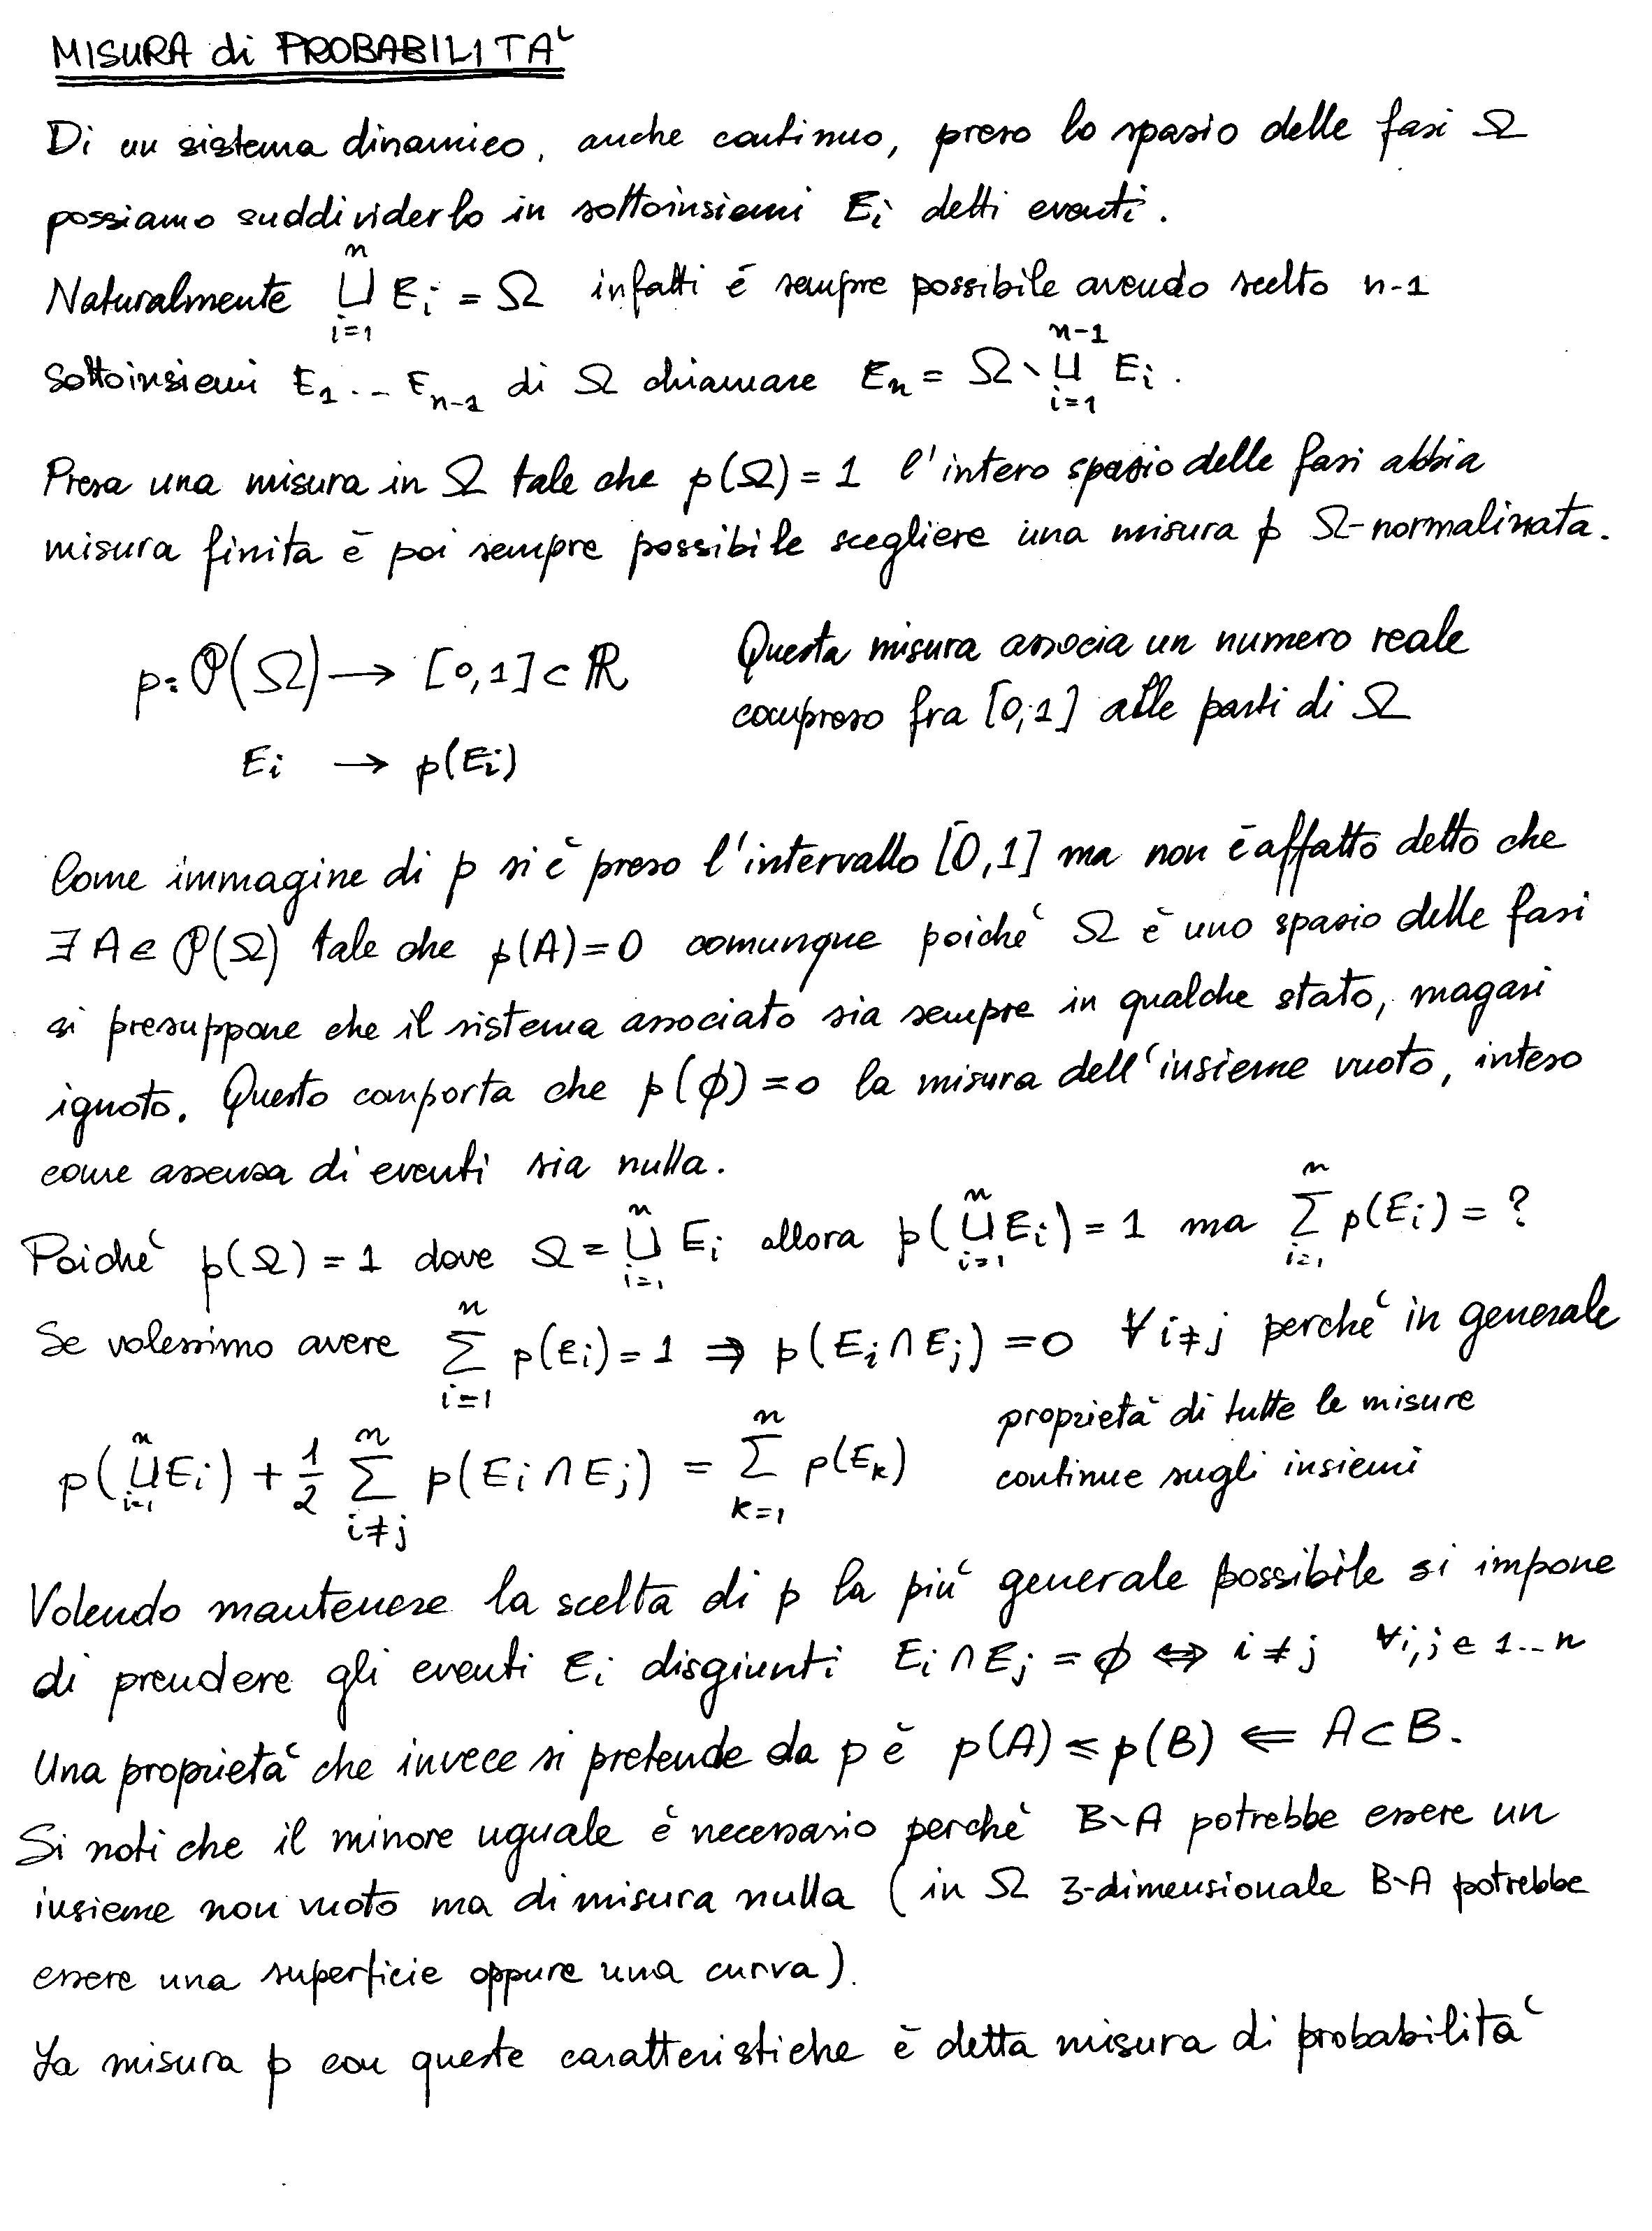 MISURA di PROBABILITÀ
Di un sistema dinamico, anche continuo, preso lo spazio delle fasi Ω
possiamo suddividerlo in sottoinsiemi Ei detti eventi.
Naturalmente ⋃_{i=1}^{n} Ei = Ω infatti é sempre possibile avendo scelto n-1
sottoinsiemi E1 ... En-1 di Ω chiamare En = Ω \ ⋃_{i=1}^{n-1} Ei.
Presa una misura in Ω tale che p(Ω) = 1 l'intero spazio delle fasi abbia
misura finita è poi sempre possibile scegliere una misura p Ω-normalizzata.
p: 𝒫(Ω) → [0,1] ⊂ ℝ Questa misura associa un numero reale
compreso fra [0;1] alle parti di Ω
Ei → p(Ei)
Come immagine di p si è preso l'intervallo [0,1] ma non è affatto detto che
∃ A ∈ 𝒫(Ω) tale che p(A)=0 comunque poiché Ω è uno spazio delle fasi
si presuppone che il sistema associato sia sempre in qualche stato, magari
ignoto. Questo comporta che p(ϕ)=0 la misura dell'insieme vuoto, inteso
come assenza di eventi sia nulla.
Poiché p(Ω) = 1 dove Ω = ⋃_{i=1}^{n} Ei allora p(⋃_{i=1}^{n} Ei) = 1 ma ∑_{i=1}^{n} p(Ei) = ?
Se volessimo avere ∑_{i=1}^{n} p(Ei) = 1 ⇒ p(Ei ∩ Ej) = 0 ∀ i≠j perché in generale
proprietà di tutte le misure
p(⋃_{i=1}^{n} Ei) + 1/2 ∑_{i≠j}^{n} p(Ei ∩ Ej) = ∑_{k=1}^{n} p(Ek) continue sugli insiemi
Volendo mantenere la scelta di p la piú generale possibile si impone
di prendere gli eventi Ei disgiunti Ei ∩ Ej = ϕ ⇔ i ≠ j ∀i,j ∈ 1...n
Una proprietà che invece si pretende da p è p(A) ≤ p(B) ⇐ A ⊂ B.
Si noti che il minore uguale è necessario perché B\A potrebbe essere un
insieme non vuoto ma di misura nulla (in Ω 3-dimensionale B\A potrebbe
essere una superficie oppure una curva).
La misura p con queste caratteristiche è detta misura di probabilità